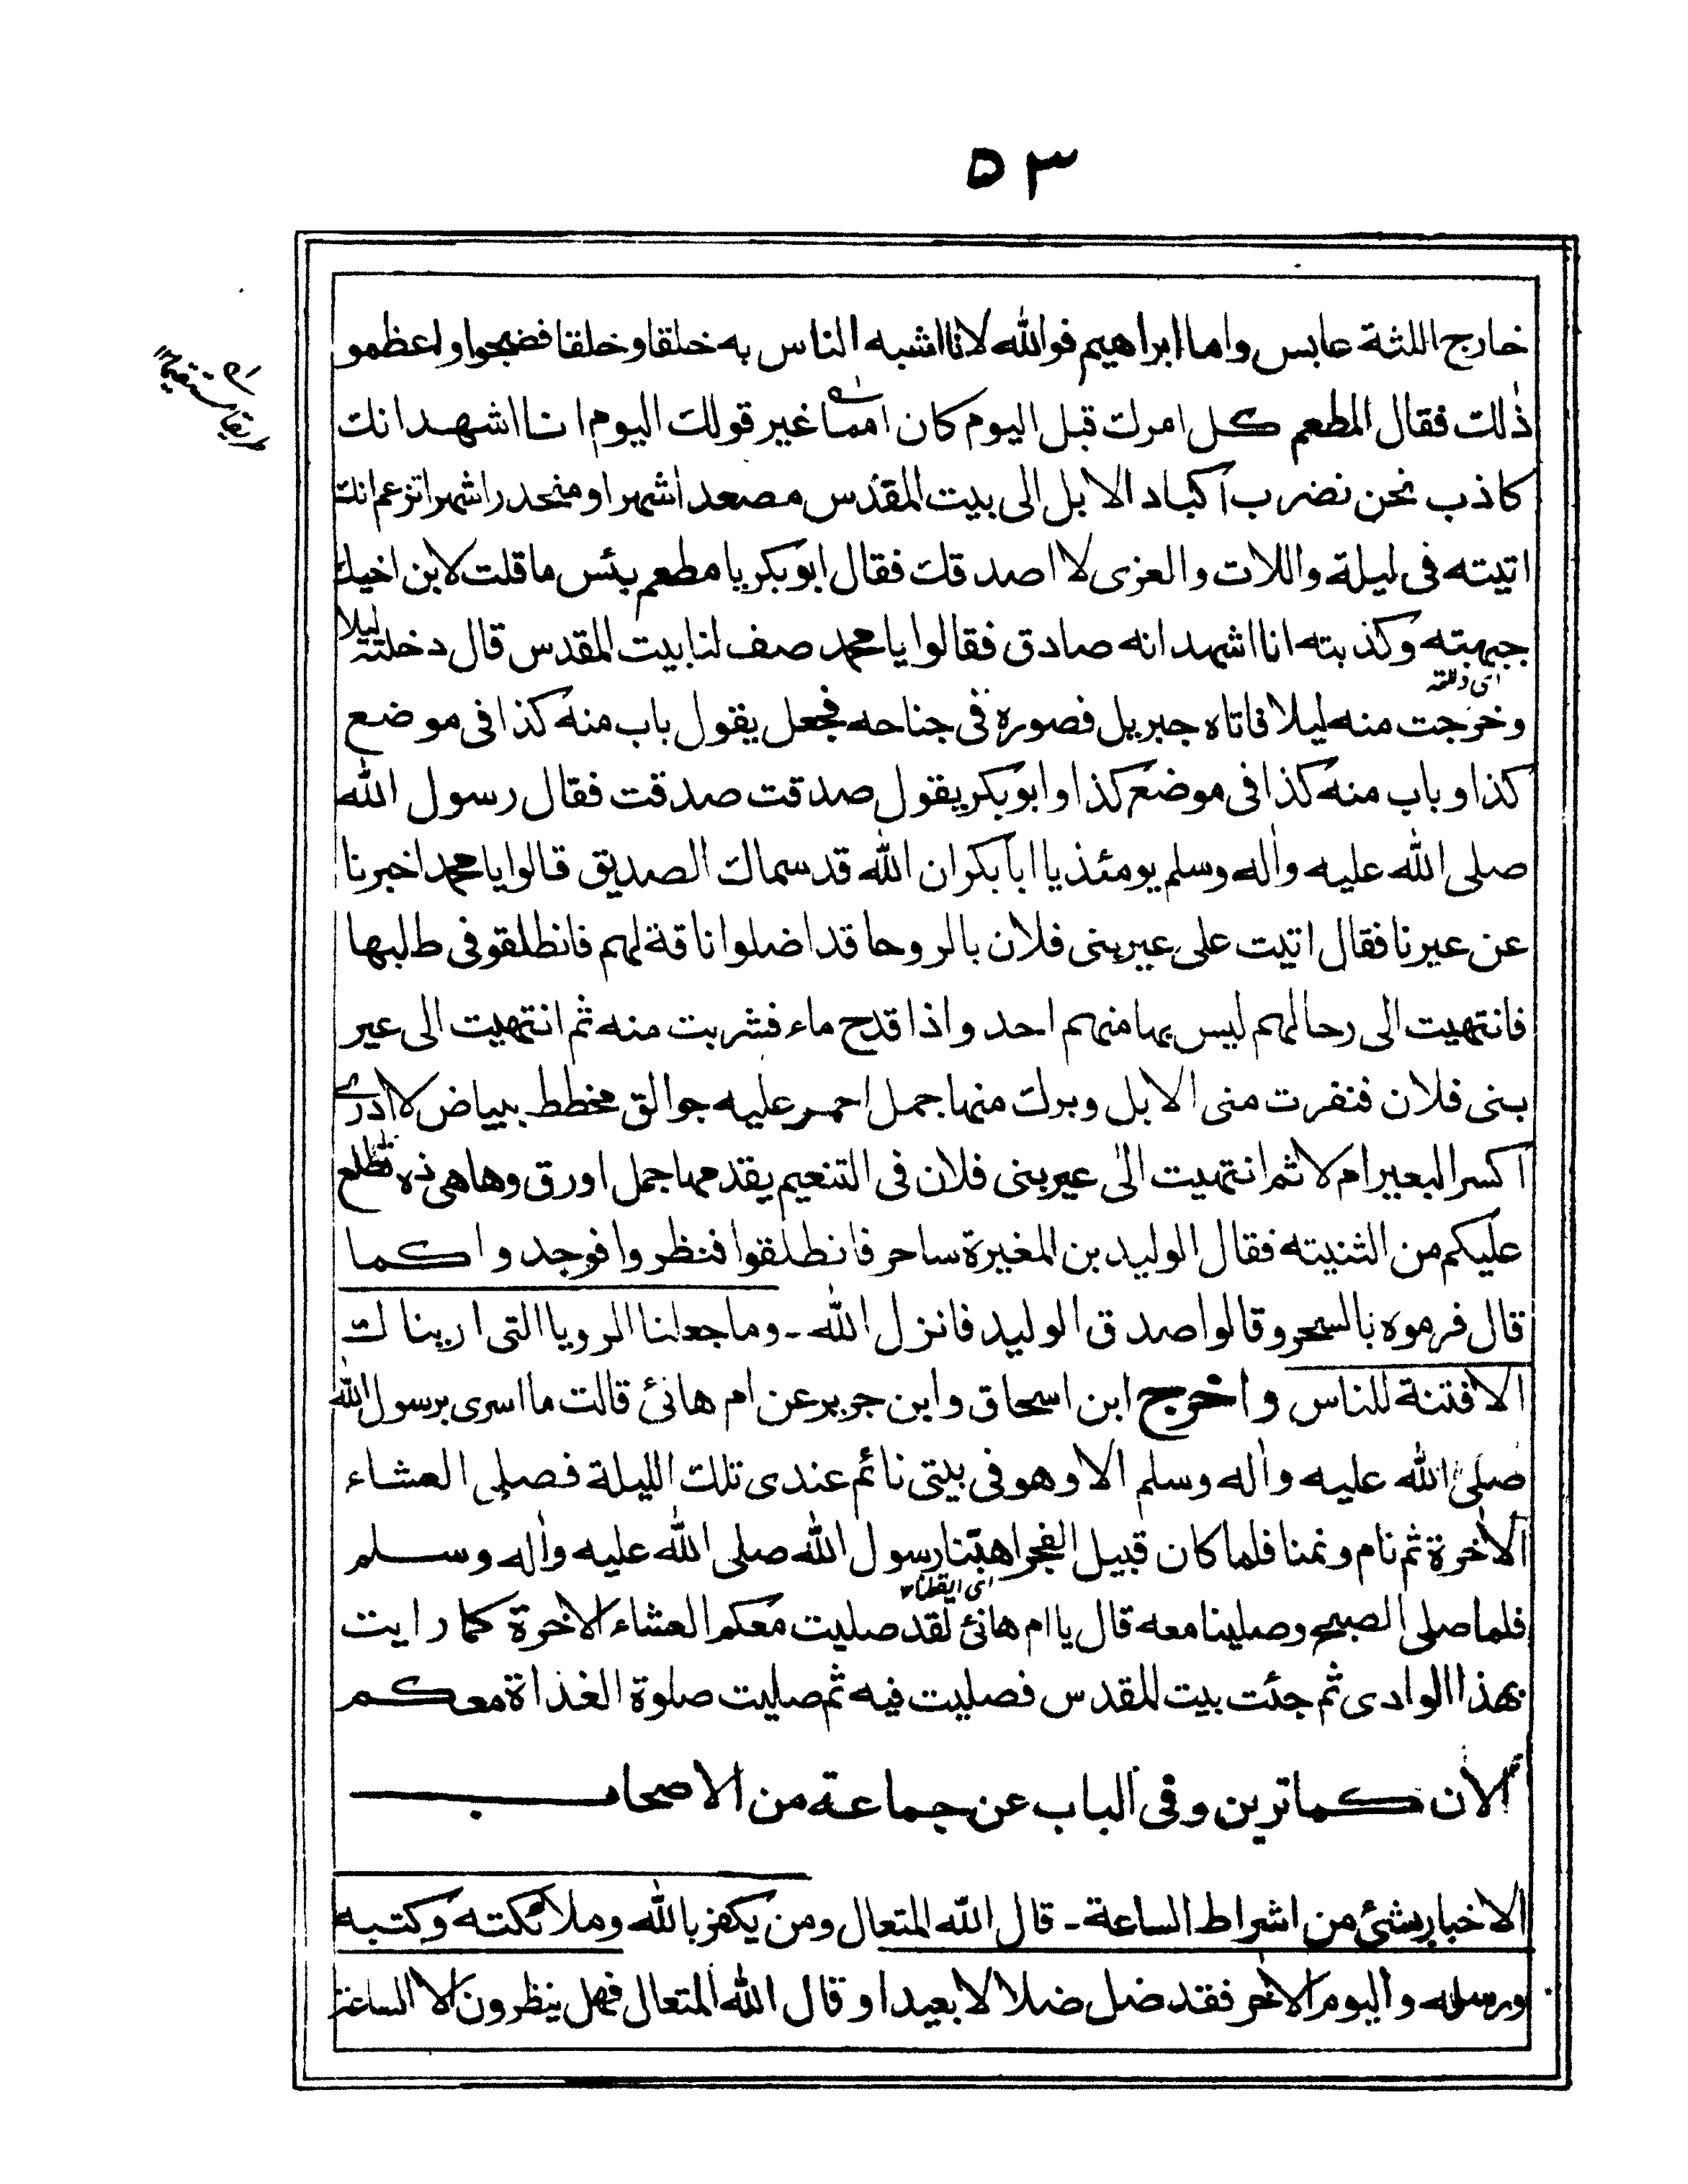 ٥٣
خارج اللثة عابس واما ابراهيم فوالله لانا اشبه الناس به خلقا وخلقا فضجوا واعظمو
ذٰلك فقال المطعم كل امرك قبل اليوم كان امما غير قولك اليوم انا اشهد انك
كاذب نحن نضرب اكباد الابل الى بيت المقدس مصعد اشهرا ومنحدر اشهرا تزعم انك
اتيته فى ليلة واللات والعزى لا اصدقك فقال ابوبكر يا مطعم بئس ما قلت لابن اخيك
جبهته وكذبته انا اشهد انه صادق فقالوا يا محمد صف لنا بيت المقدس قال دخلته ليلا
وخرجت منه ليلا فاتاه جبريل فصوره فى جناحه فجعل يقول باب منه كذا فى موضع
كذا وباب منه كذا فى موضع كذا وابوبكر يقول صدقت صدقت فقال رسول الله
صلى الله عليه واٰله وسلم يومئذ يا ابا بكر ان الله قد سماك الصديق قالوا يا محمد اخبرنا
عن عيرنا فقال اتيت على عير بنى فلان بالروحا قد اضلوا ناقة لهم فانطلقو فى طلبها
فانتهيت الى رحالهم ليس بها منهم احد واذا قدح ماء فشربت منه ثم انتهيت الى عير
بنى فلان فنفرت منى الابل وبرك منها جمل احمر عليه جوالق مخطط ببياض لا ادرى
اكسر البعير ام لا ثم انتهيت الى عير بنى فلان فى التنعيم يقدمها جمل اورق وها هى ذه تطلع
عليكم من الثنيته فقال الوليد بن المغيرة ساحر فانطلقوا فنظروا فوجدوا كما
قال فرموه بالسحر وقالوا صدق الوليد فانزل الله - وما جعلنا الرويا التى ارينا ك
الا فتنة للناس واخرج ابن اسحاق وابن جرير عن ام هانئ قالت ما اسرى برسول الله
صلى الله عليه واٰله وسلم الا وهو فى بيتى نائم عندى تلك الليلة فصلى العشاء
الاٰخرة ثم نام ونمنا فلما كان قبيل الفجر اهبّنا رسول الله صلى الله عليه واٰله وسلم
اى ايقظنا
فلما صلى الصبح وصلينا معه قال يا ام هانئ لقد صليت معكم العشاء الاخرة كما رايت
بهذا الوادى ثم جئت بيت المقدس فصليت فيه ثم صليت صلوة الغداة معكم
الاٰن كما ترين وفى الباب عن جماعة من الاصحاب
الاخبار بشئ من اشراط الساعة - قال الله المتعال ومن يكفر بالله وملائكته وكتبه
ورسله واليوم الاٰخر فقد ضل ضلالا بعيدا وقال الله المتعال فهل ينظرون الا الساعة